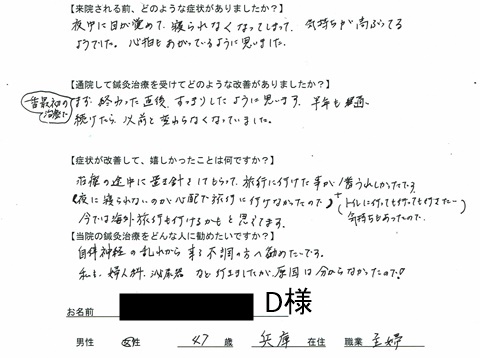 【来院される前、どのような症状がありましたか？】
夜中に目が覚めて、寝られなくなってしまって、気持ちが高ぶってる
ようでした。心拍もあがっているように思いました。
【通院して鍼灸治療を受けてどのような改善がありましたか？】
一番最初の
治療で
まず、終わった直後、すっきりしたように思います。半年も
続けたら、以前と変わらなくなっていました。
【症状が改善して、嬉しかったことは何ですか？】
治療の途中に置き針をしてもらって、旅行に行けた事が1番うれしかったです
（夜に寝られないのが心配で旅行に行けなかったので）
トイレに行っても行っても行きたい
気持ちもあったので
今では海外旅行も行けるかもと思えてます。
【当院の鍼灸治療をどんな人に勧めたいですか？】
自律神経の乱れから来る不調の方へ勧めたいです。
私も、婦人科、泌尿器など行きましたが、原因は分からなかったので！
お名前 D様
男性 女性 47 歳 兵庫 在住 職業 主婦